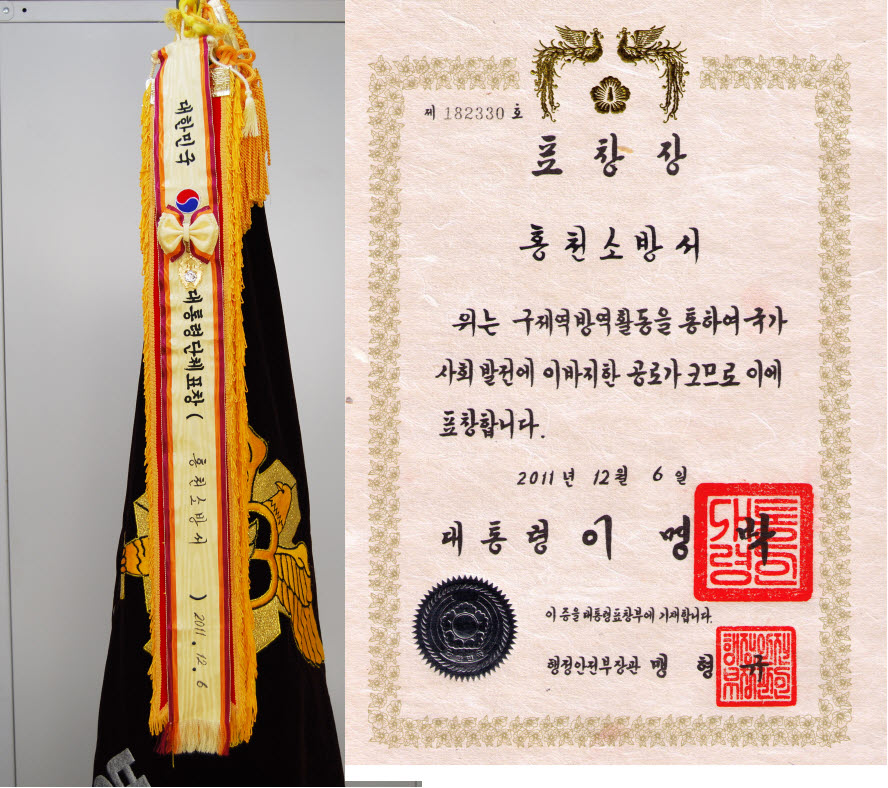 대한민국
대통령단체표창 (
홍천소방서
)
2011. 12. 6
제 182330 호
표창장
홍천소방서
위는 구제역방역활동을 통하여 국가
사회 발전에 이바지한 공로가 크므로 이에
표창합니다.
2011년 12월 6일
대통령 이명박
이 증을 대통령표창부에 기재합니다.
행정안전부장관 맹형규